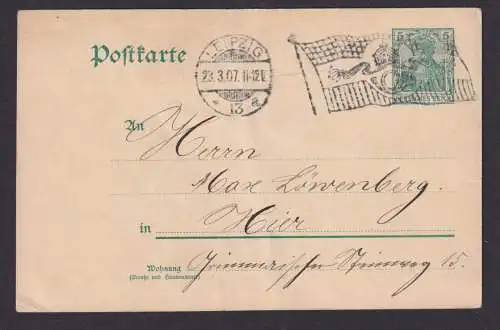 Postkarte
LEIPZIG
23.3.07. 11-12V.
* 13 a
5 5
DEUTSCHES REICH
An
Herrn
Max Löwenberg.
in Hier
Wohnung
(Straße und Hausnummer)
Grimmaischer Steinweg 15.